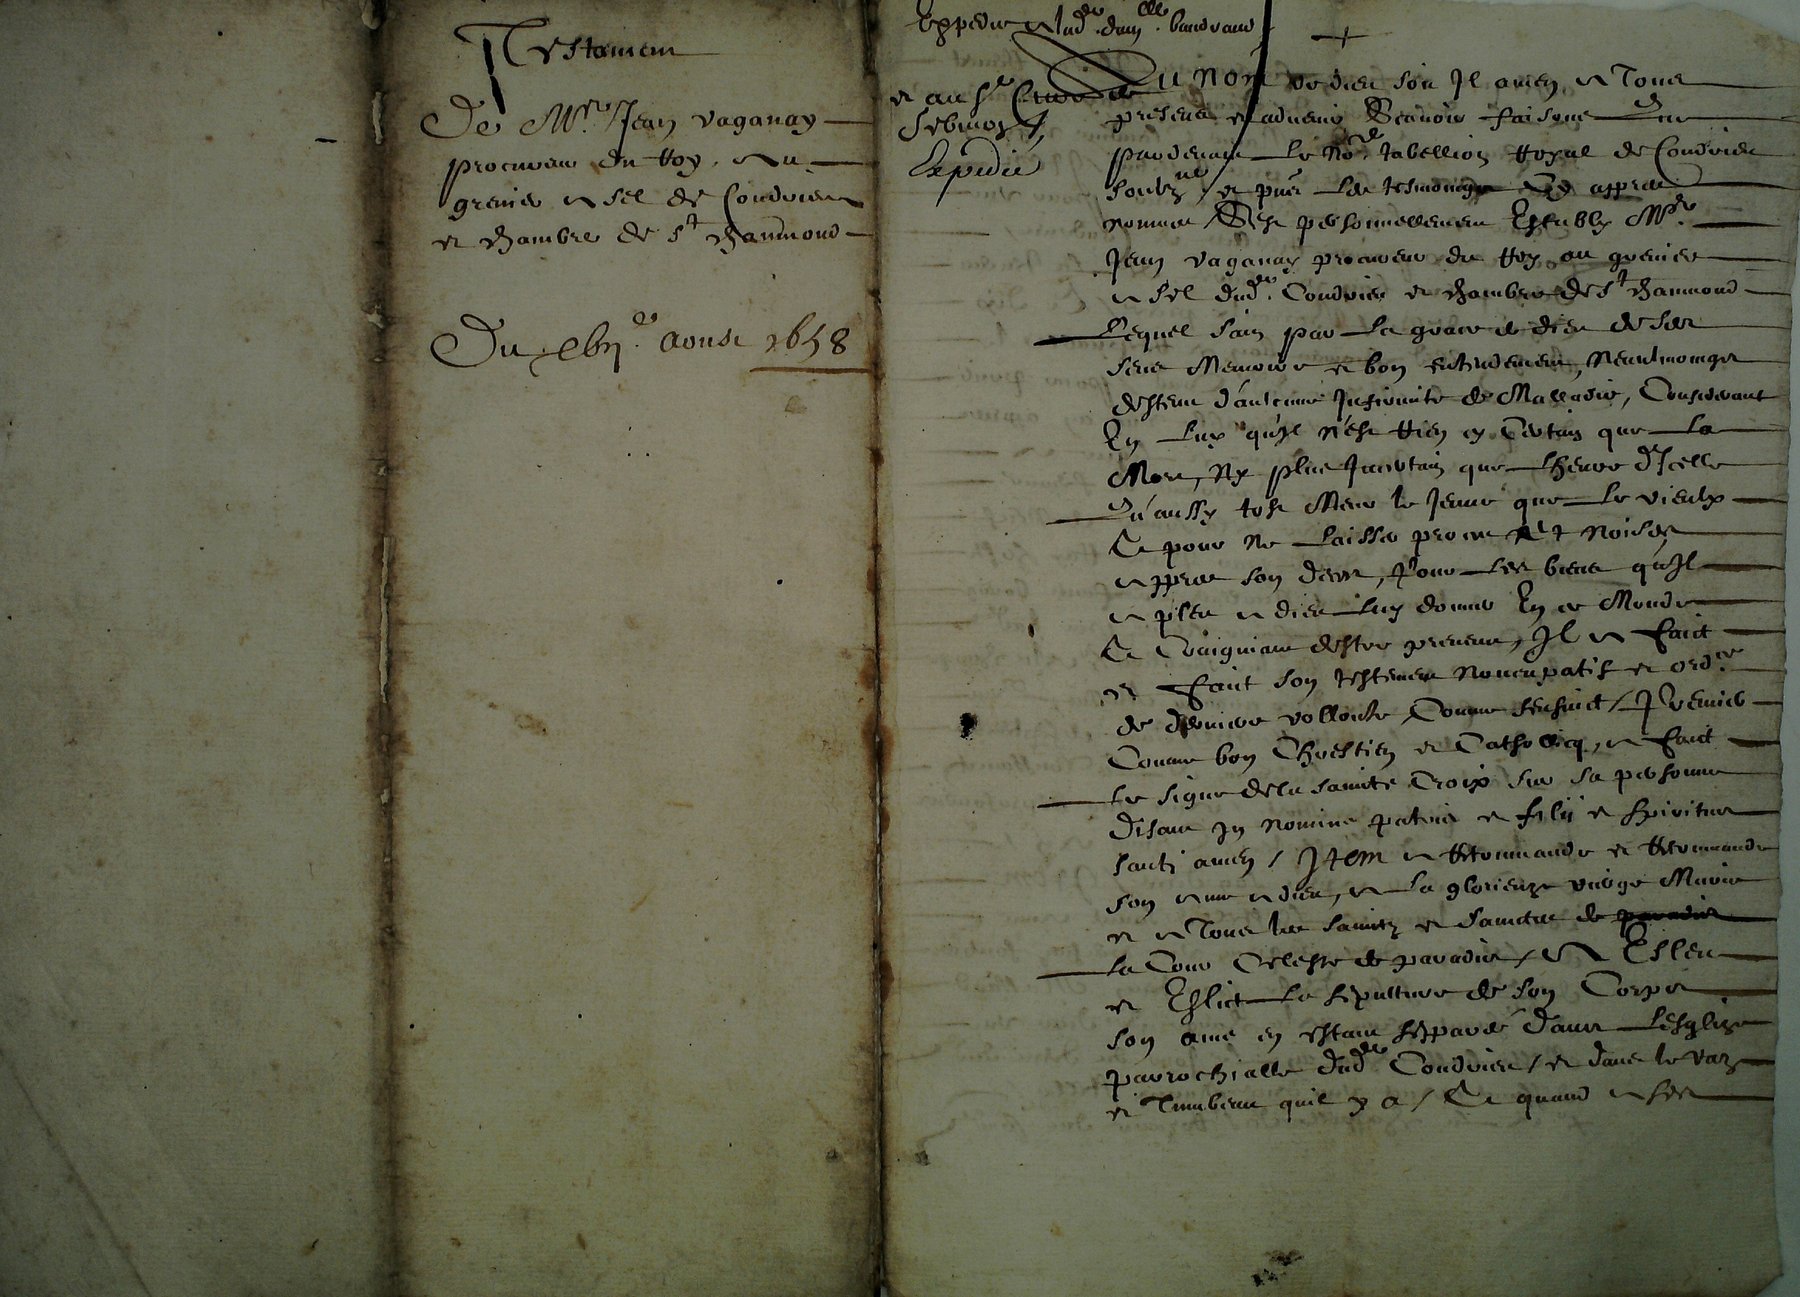 Testament
De Mre Jean vaganay
procureur du Roy, au
grenier a sel de Condrieu
et chambre de St chaumond
Du aoust 1658
Expedié a lad. damlle
et au Sr
Expedié
+
Au nom de dieu soit Il amen, A Tous
presens et advenir Scavoir faisons Que
pardevant le Nore tabellion Royal de Condrieu
soubzne, et pnt les tesmoings Cy appres
nommes, S'est personnellement Estably Mre
Jean vaganay procureur du Roy au grenier
a sel dud. Condrieu et chambre de St chaumond
Lequel sain par la grace de dieu de ses
sens Memoire et bon entendement, Neanlmoings
destenu d'aulcune Infirmite de Malladie, Considerant
En luy qu'Il n'est Rien sy Certain que la
Mort, Ny plus Incertain que lheure d'Icelle
Qu'aussy tost Meurt le Jeune que le vieulx
Et pour Ne laisser proces Et Noises
appres son deces, Pour les biens qu'Il
a pleu a dieu luy donner En ce Monde
Et Craignant destre prevenu, Il a faict
et faict son testement Noncupatif et ordce
de derniere vollonte Comme sensuict / Premier
Comme bon Chrestien et Catholicq, a faict
le signe de la saincte Croix sur sa personne
Disant In nomine patris et filii et spiritus
santi amen / Item a Recommande et Recommande
son ame a dieu, a la glorieuze vierge Marie
et a Tous les sainctz et sainctes de paradis
la Cour Celeste de paradis / A Esleu
et Eslict la sepulture de son Corps
son ame en estant sepparée dans Lesglize
parrochialle dud. Condrieu / et dans le vaz
et Tumbeau quil y a / Et quand a ses